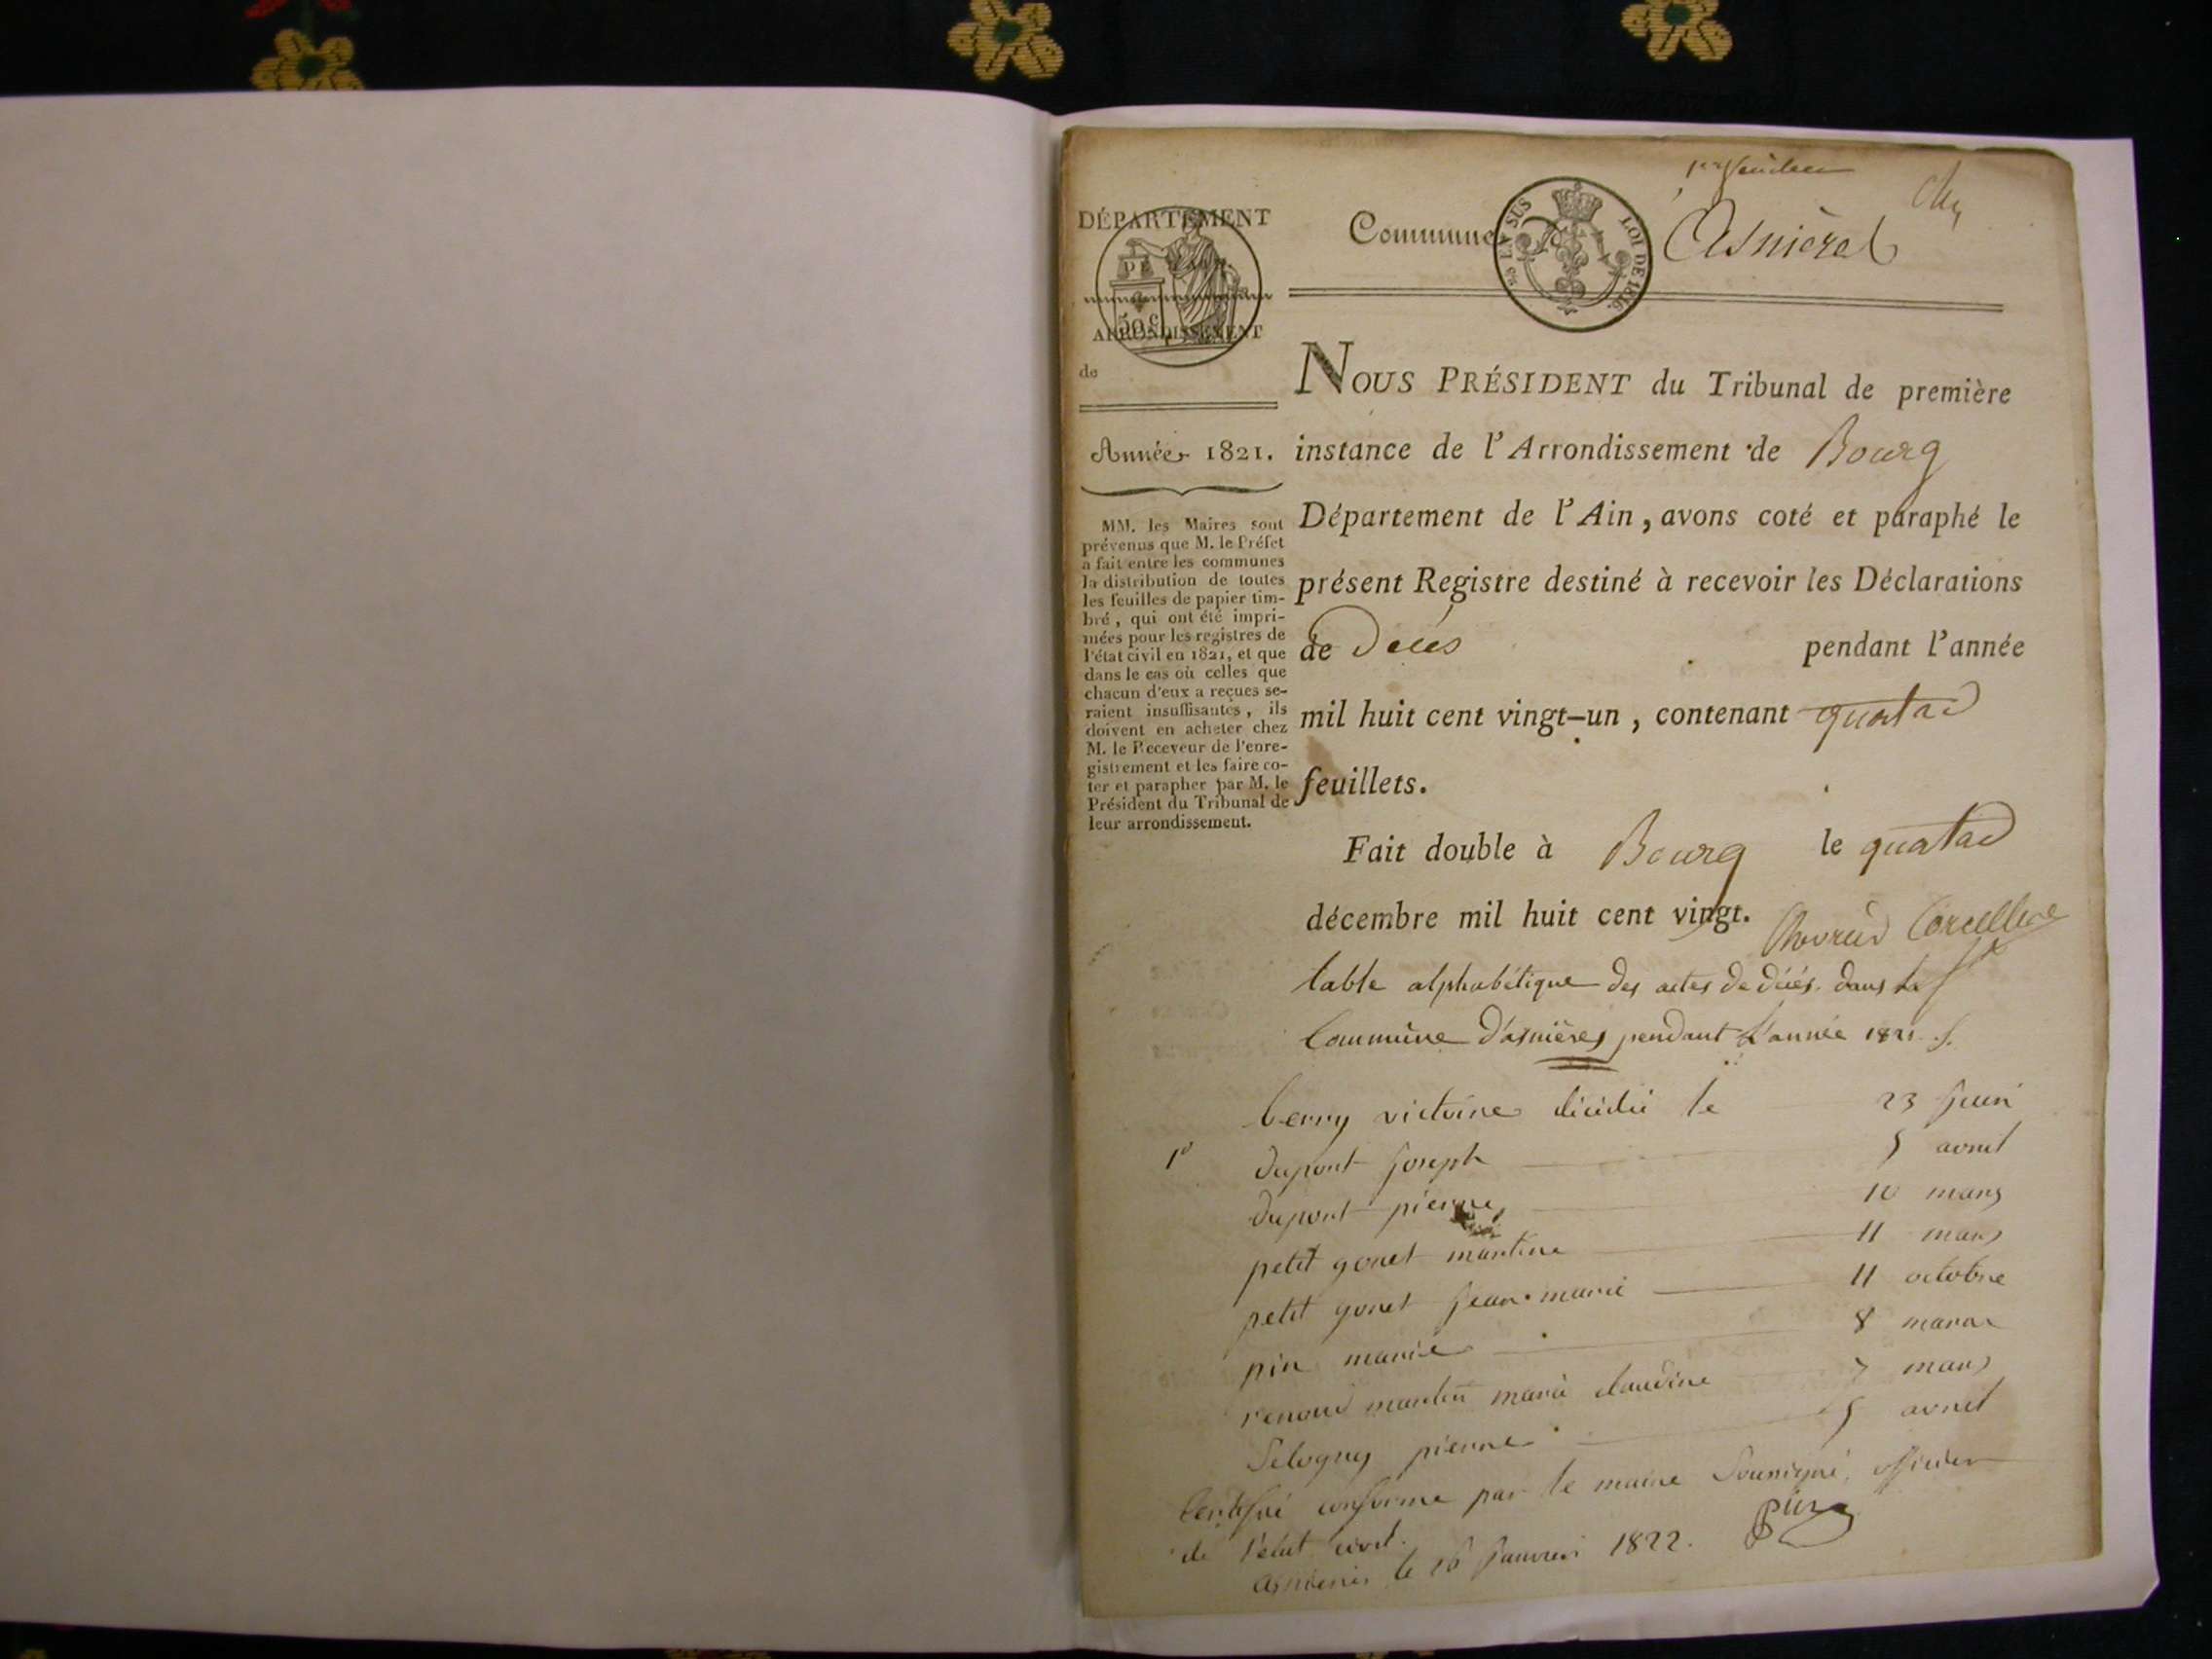 1er feuillet
DÉPARTEMENT
DE L'AIN.
50 c
ARRONDISSEMENT
de
Commune
EN SUS
LOI DE 1816.
Asnières
Année 1821.
MM. les Maires sont
prévenus que M. le Préfet
a fait entre les communes
la distribution de toutes
les feuilles de papier tim-
bré, qui ont été impri-
mées pour les registres de
l'état civil en 1821, et que
dans le cas où celles que
chacun d'eux a reçues se-
raient insuffisantes, ils
doivent en acheter chez
M. le Receveur de l'enre-
gistrement et les faire co-
ter et parapher par M. le
Président du Tribunal de
leur arrondissement.
NOUS PRÉSIDENT du Tribunal de première
instance de l'Arrondissement de Bourg
Département de l'Ain, avons coté et paraphé le
présent Registre destiné à recevoir les Déclarations
de Décès pendant l'année
mil huit cent vingt-un, contenant quatre
feuillets.
Fait double à Bourg le quatre
décembre mil huit cent vingt.
table alphabétique des actes de décès dans la
Commune d'asnières pendant l'année 1821
berry victoire décédée le 23 juin
dupont joseph 5 avril
dupont pierre 10 mars
petit gonet martine 11 mars
petit gonet jean marie 11 octobre
pin marie 8 mars
renoud marie claudine 7 mars
Pierre 5 avril
Certifié conforme par le maire soussigné, officier
de l'etat civil.
asnieres le 16 janvier 1822.